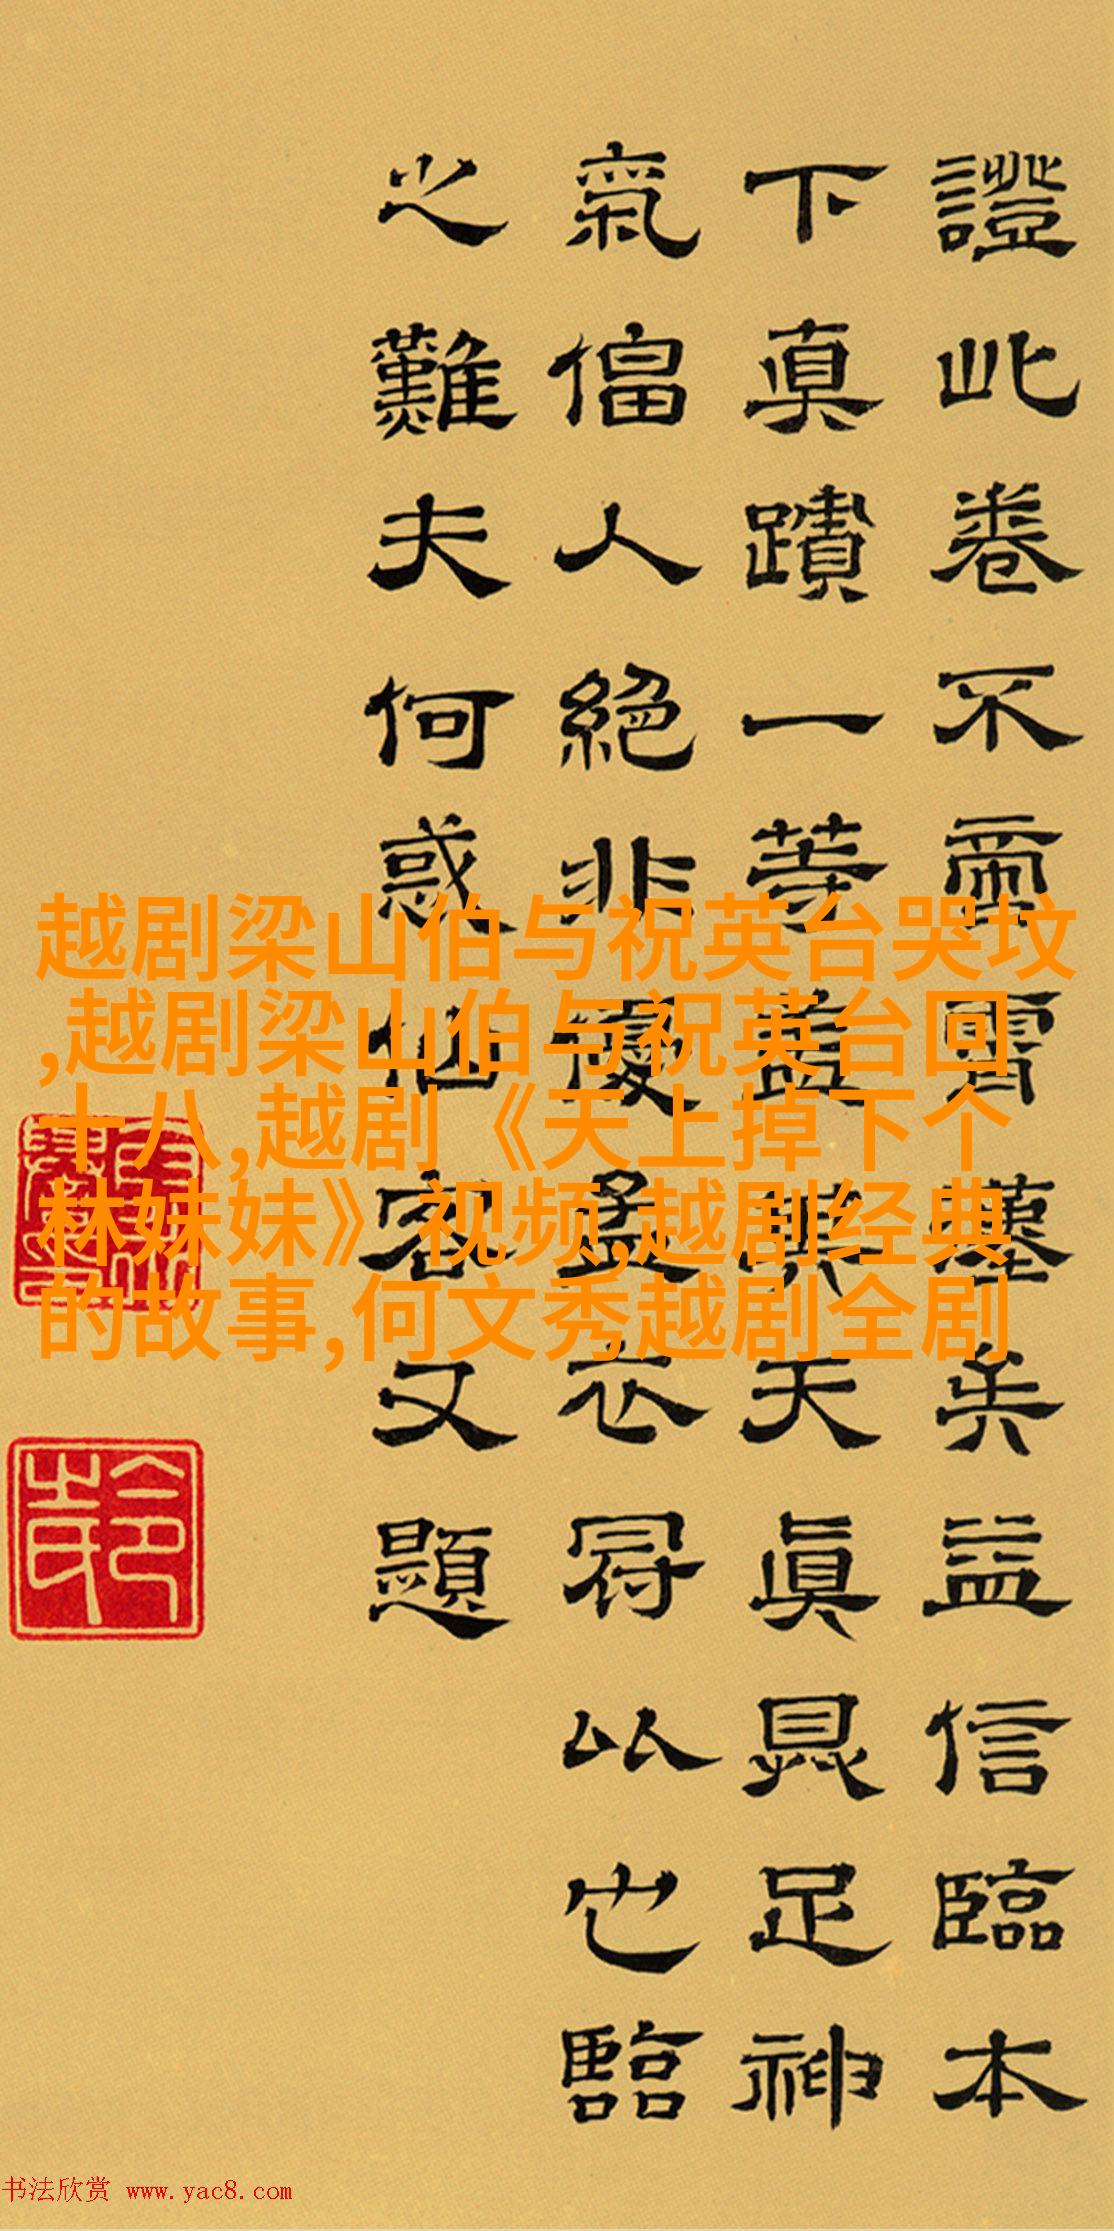 證此卷不啻霄壤矣益信臨本
下眞蹟一等蓋其天眞具足神
氣偪人絕非優孟衣冠以也臨
之難夫何惑仙客又題
越剧梁山伯与祝英台哭坟
,越剧梁山伯与祝英台回
十八,越剧《天上掉下个
林妹妹》视频,越剧经典
的故事,何文秀越剧全剧
书法欣赏 www.yac8.com